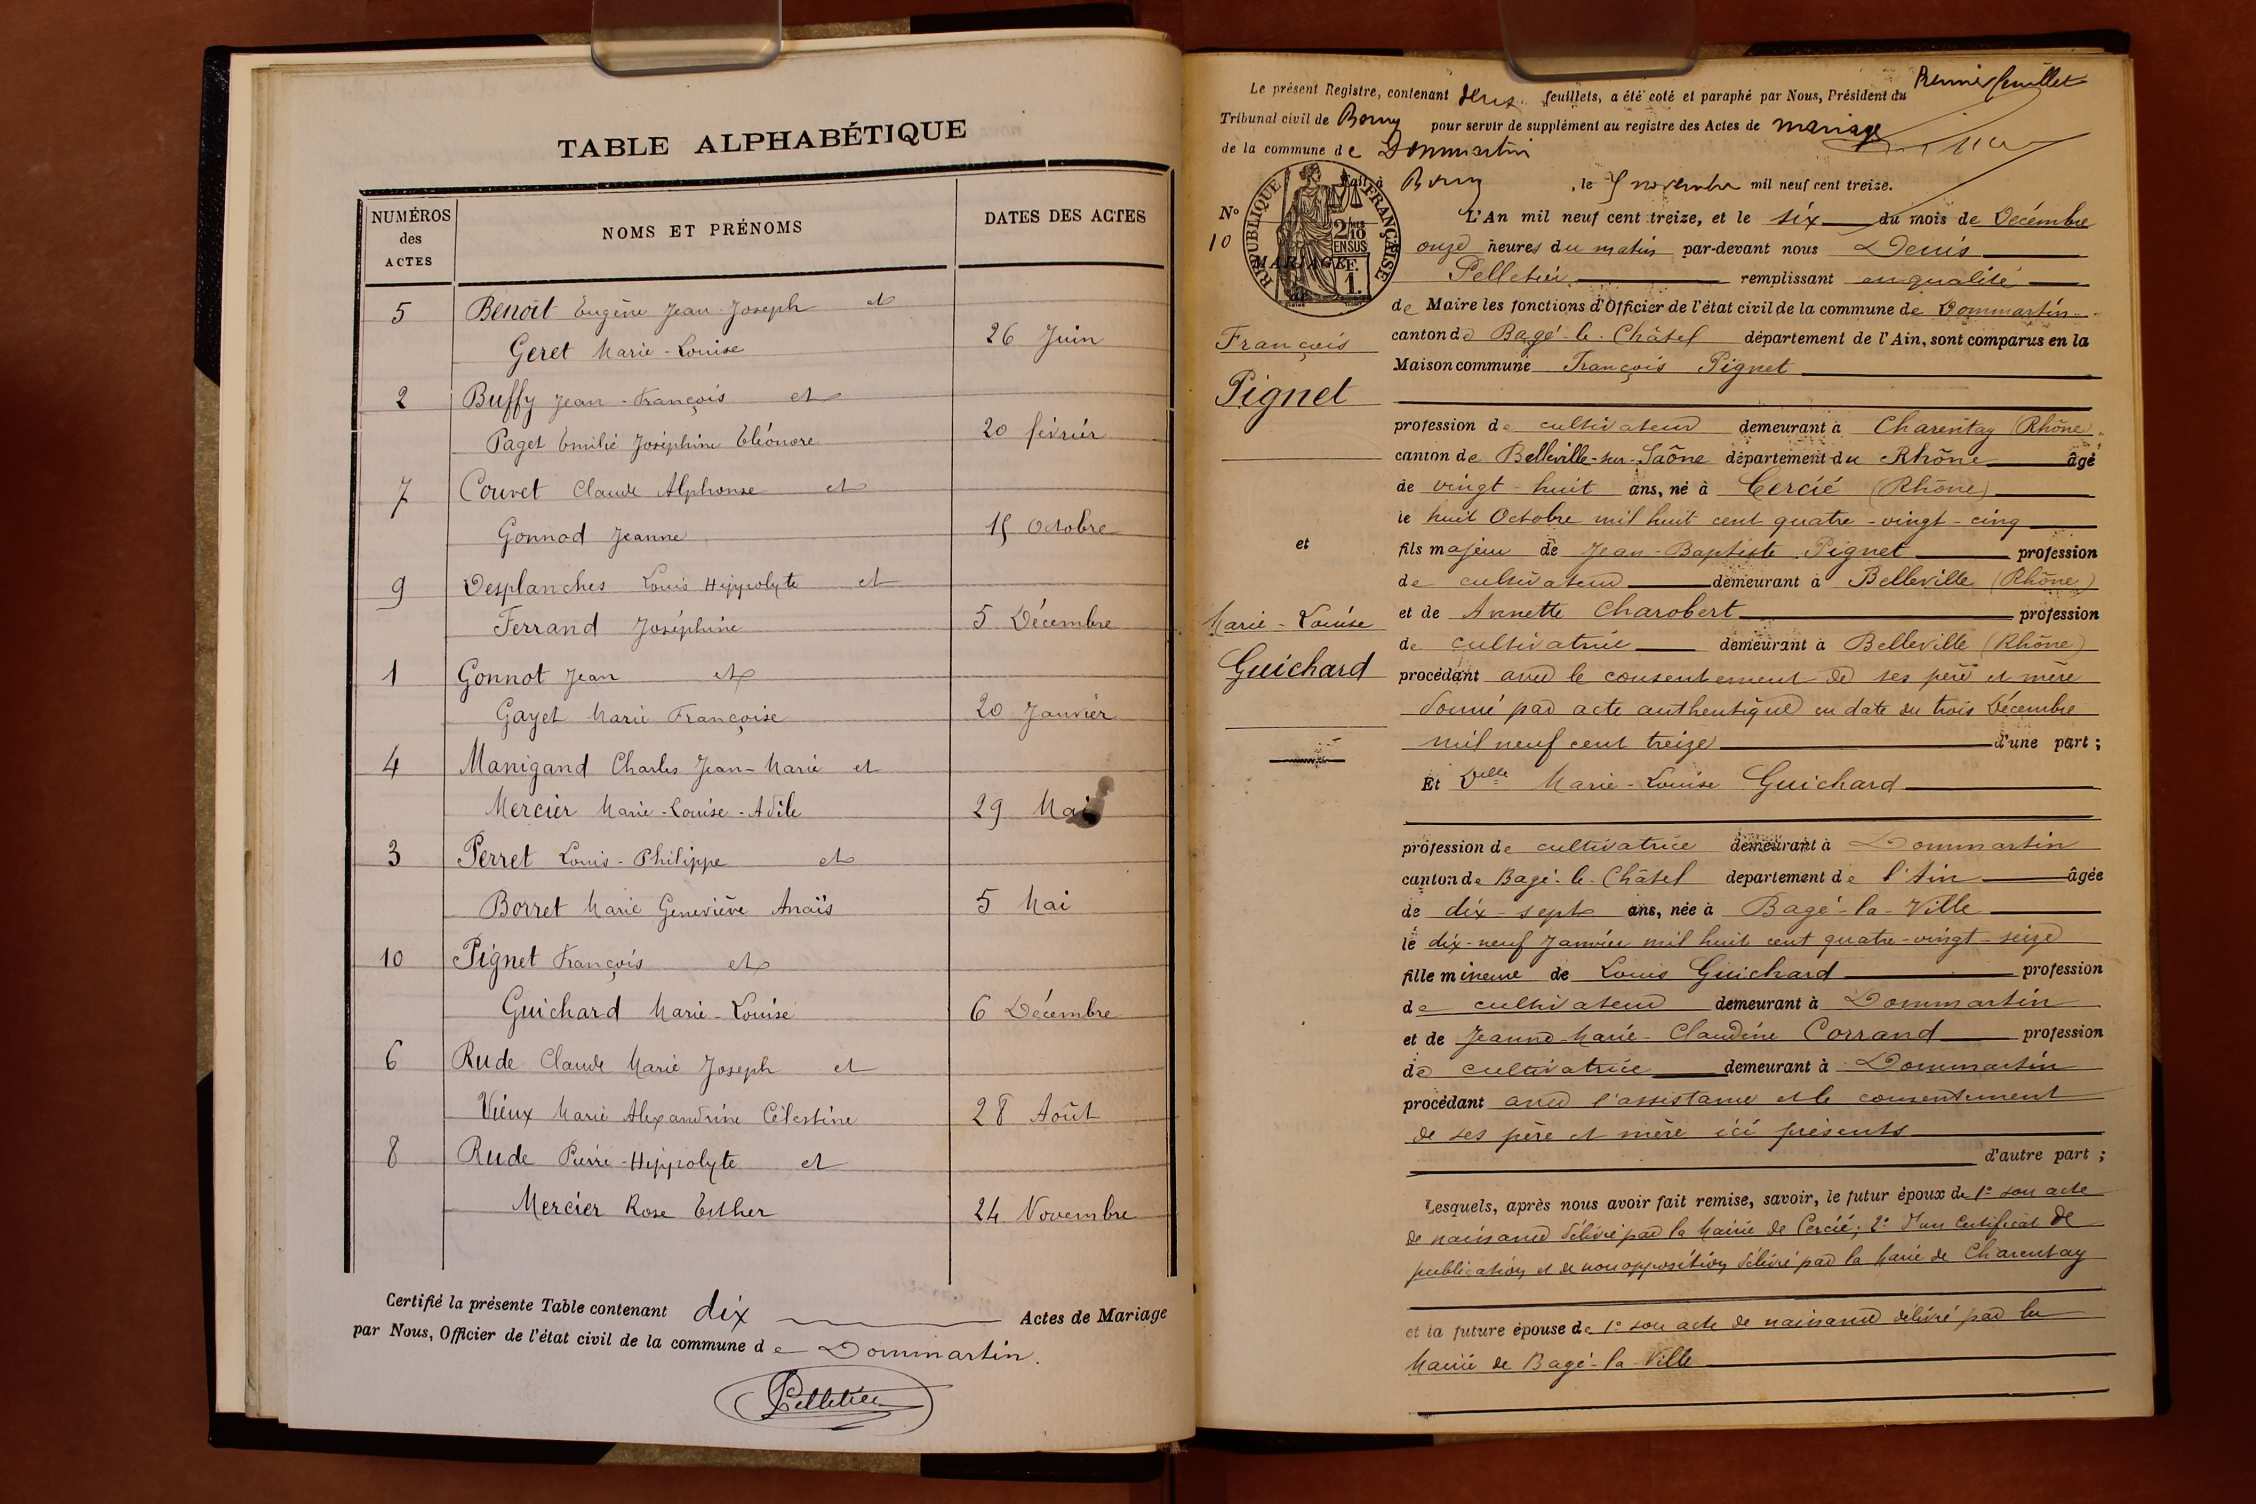 TABLE ALPHABÉTIQUE
NUMÉROS des ACTES
NOMS ET PRÉNOMS
DATES DES ACTES
5 Benoit Eugène Jean-Joseph et
Geret Marie-Louise 26 Juin
2 Buffy Jean-François et
Paget Emilie Joséphine Eléonore 20 février
7 Couvet Claude Alphonse et
Gonnod Jeanne 15 Octobre
9 Desplanches Louis Hippolyte et
Ferrand Joséphine 5 Décembre
1 Gonnot Jean et
Gayet Marie Françoise 20 Janvier
4 Manigand Charles Jean-Marie et
Mercier Marie-Louise-Adèle 29 Mai
3 Perret Louis-Philippe et
Borret Marie Geneviève Anaïs 5 Mai
10 Pignet François et
Guichard Marie-Louise 6 Décembre
6 Rude Claude Marie Joseph et
Vieux Marie Alexandrine Célestine 28 Août
8 Rude Pierre-Hippolyte et
Mercier Rose Esther 24 Novembre
Certifié la présente Table contenant dix Actes de Mariage
par Nous, Officier de l'état civil de la commune de Dommartin.
Pelletier
Premier feuillet
Le présent Registre, contenant deux feuillets, a été coté et paraphé par Nous, Président du
Tribunal civil de Bourg pour servir de supplément au registre des Actes de mariage
de la commune de Dommartin
Fait à Bourg, le novembre mil neuf cent treize.
RÉPUBLIQUE FRANÇAISE
2/10 EN SUS
F. 1.
N° 10
MARIAGE
L'An mil neuf cent treize, et le six du mois de Décembre
onze heures du matin par-devant nous Denis
Pelletier remplissant en qualité
de Maire les fonctions d'Officier de l'état civil de la commune de Dommartin
canton de Bagé-le-Châtel département de l'Ain, sont comparus en la
Maison commune François Pignet
François
Pignet
et
Marie-Louise
Guichard
profession de cultivateur demeurant à Charentay (Rhône)
canton de Belleville-sur-Saône département du Rhône âgé
de vingt-huit ans, né à Cercié (Rhône)
le huit Octobre mil huit cent quatre-vingt-cinq
fils majeur de Jean-Baptiste Pignet profession
de cultivateur demeurant à Belleville (Rhône)
et de Annette Charobert profession
de cultivatrice demeurant à Belleville (Rhône)
procédant avec le consentement de ses père et mère
donné par acte authentique en date du trois Décembre
mil neuf cent treize d'une part;
Et Delle Marie-Louise Guichard
profession de cultivatrice demeurant à Dommartin
canton de Bagé-le-Châtel département de l'Ain âgée
de dix-sept ans, née à Bagé-la-Ville
le dix-neuf Janvier mil huit cent quatre-vingt-seize
fille mineure de Louis Guichard profession
de cultivateur demeurant à Dommartin
et de Jeanne-Marie-Claudine Corrand profession
de cultivatrice demeurant à Dommartin
procédant avec l'assistance et le consentement
de ses père et mère ici présents
d'autre part;
Lesquels, après nous avoir fait remise, savoir, le futur époux de 1° son acte
de naissance délivré par la Mairie de Cercié; 2° d'un certificat de
publication et de non opposition délivré par la Mairie de Charentay
et la future épouse de 1° son acte de naissance délivré par la
Mairie de Bagé-la-Ville